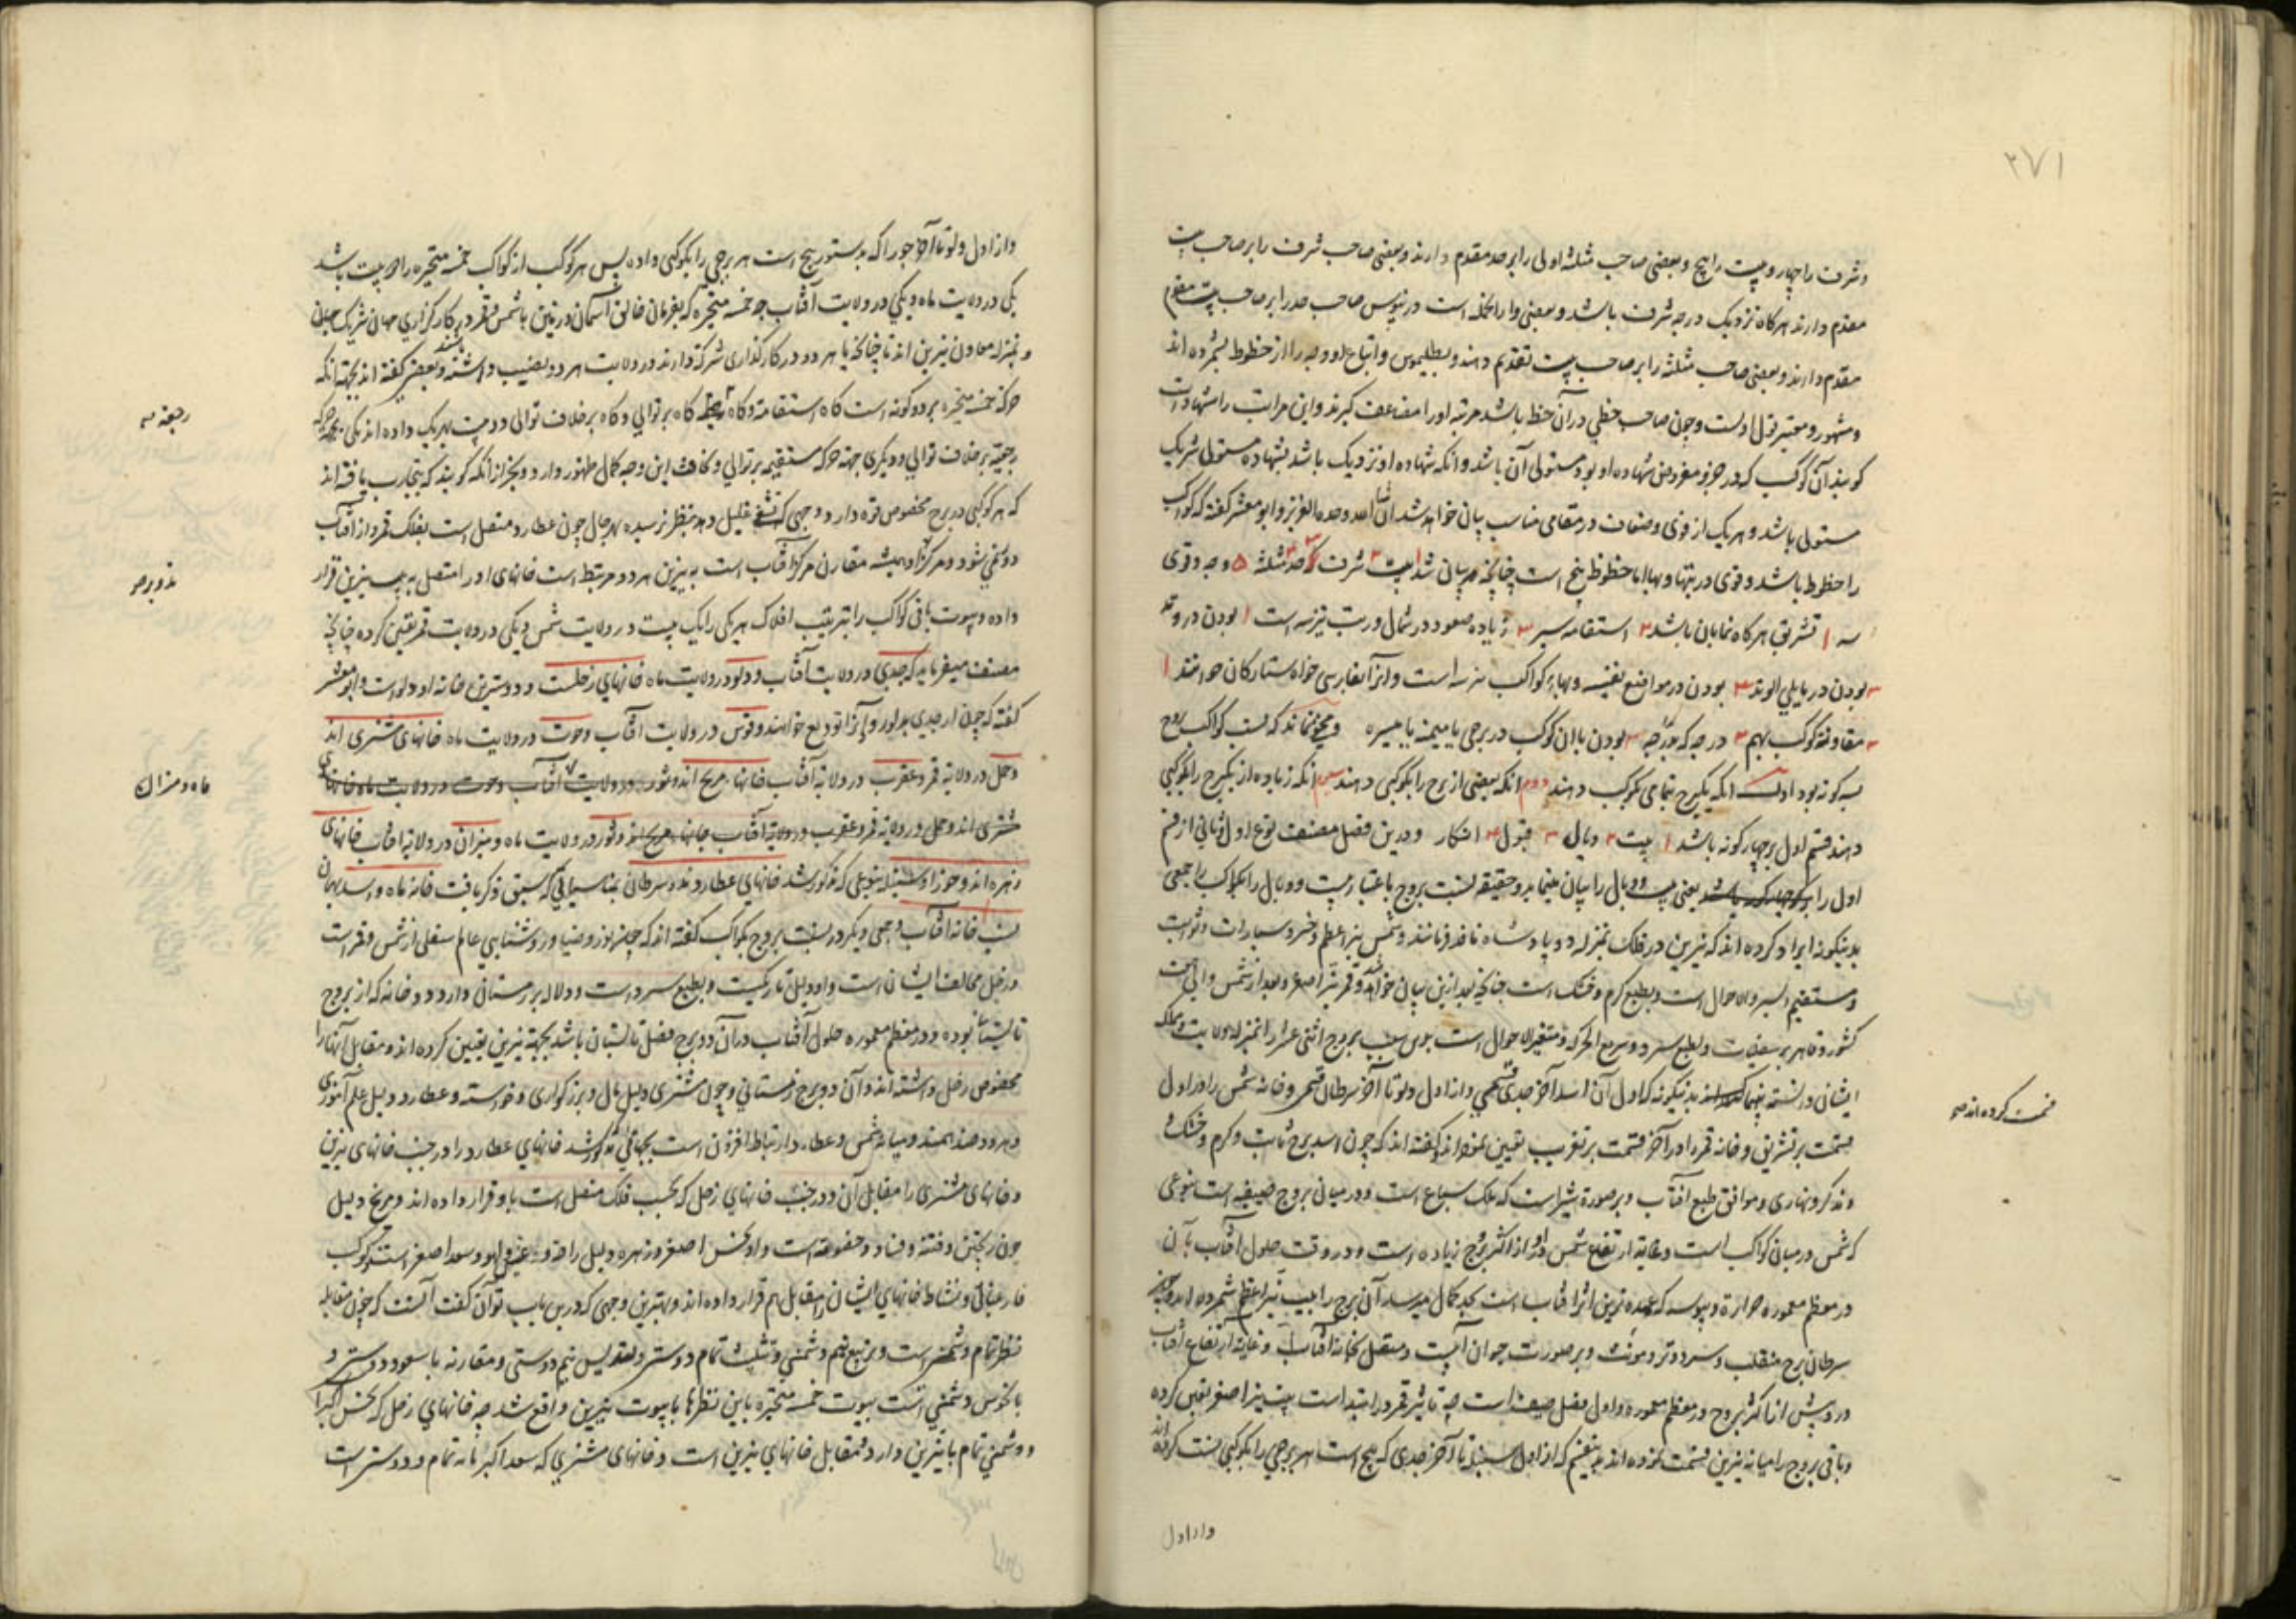 ۲۷۱
وشرف را چهار و بیت را پنج و بعضی صاحب مثلثه اولی را بر حد مقدم دارند و بعضی صاحب شرف را بر صاحب بیت
مقدم دارند هرگاه نزدیک درجه شرف باشد و بعضی صاحب حد را بر صاحب بیت مقدم
مقدم دارند و بعضی صاحب مثلثه را بر صاحب بیت تقدیم دهند و بطلیموس و اتباع او وجه را از حظوظ نشمرده اند
ومشهور و معتبر قول اولست و چون صاحب حظی در آن حظ باشد مرتبه او را مضاعف گیرند و این مراتب را شهادات
گویند آن کوکب که در جزو مفروض شهاده او بود مستولی آن باشد و آنکه شهاده او نزدیک باشد بشهاده مستولی شریک
مستولی باشد و هر یک از قوی و ضعاف در مقامی مناسب بیان خواهد شد ان شا الله وحده العزیز و ابو معشر گفته که کواکب
را حظوظ باشد و قوی در بیتها و بها اما حظوظ پنج است چنانچه بیان شد ۱ بیت ۲ شرف ۳ حد ۴ مثلثه ۵ وجه و قوی
سه ۱ تشریق هرگاه نمایان باشد ۲ استقامه سیر ۳ زیاده صعود در شمال و رتب نیز سه است ۱ بودن در وتد
۲ بودن در مایلی الوتد ۳ بودن در مواضع نفیسه و بهاء کواکب نیز سه است و آنرا بفارسی خواه ستارکان خوانند ۱
کوکب بهم ۲ درجه که ۳ بودن با آن کوکب در برجی یا میمنه یا میسره و مخفی نماند که نسبت کواکب بروج
سه گونه بود اول آنکه یکبرج بتمامی بکوکب دهند دوم آنکه بعضی از برج را بکوکبی دهند سیوم آنکه زیاده از یکبرج را بکوکبی
دهند قسم اول بر چهار گونه باشد ۱ بیت ۲ وبال ۳ قبول ۴ انکار و درین فصل مصنف نوع اول و ثانی از قسم
اول را یعنی بیت و وبال را بیان مینماید و حقیقه نسبت بروج باعتبار بیت و وبال را بکواکب جمعی
بدینگونه ایراد کرده اند که نیرین در فلک بمنزله دو پادشاه نافذ فرمانند و شمس نیر اعظم و خسرو سیارات و ثوابت
ومستقیم السیر والاحوال است و بطبع گرم و خشک است چنانچه بعد ازین بیان خواهد شد و قمر نیر اصغر و بعد از شمس والی
کشور و قاهر بر سفلیات و بطبع سرد و سریع الحرکه و متغیر الاحوال است بروج اثنی عشر را بمنزله ولایت و مملکت
ایشان دانسته بدینگونه که اول آن اسد آخر جدی قسمی و از اول دلو تا آخر سرطان قسمی و خانه شمس را در اول
قسمت بر تشریق و خانه قمر را در آخر قسمت بر تغریب تعیین نموده اند و گفته اند که چون اسد برج ثابت و گرم و خشک
ومذکر و نهاری و موافق طبع آفتاب و بر صورة شیر است که ملک سباع است و در میان بروج است بنوعی
که شمس در میان کواکب است و غایه ارتفاع شمس در او از اکثر بروج زیاده است و در وقت حلول آفتاب بآن
در معظم معموره حرارة و یبوسه که عمده ترین اثر آفتاب است بحد کمال میرسد آن برج را بیت نیر اعظم شمرده اند و چون
سرطان برج منقلب و سرد و تر و مونث و بر صورت حیوان آبیست و متصل بخانه آفتاب و غایه ارتفاع آفتاب
در و بیش از اکثر بروج در معظم معموره و اول فصل صیف است چه تاثیر قمر در ابتداست بیت نیر اصغر تعیین کرده
وباقی بروج را میانه نیرین قسمت نموده اند بدینقسم که از اول سنبله تا آخر جدی که پنج است هر برجی را بکوکبی نسبت کرده اند
قسمت کرده اند صح
و از اول
و از اول دلو تا آخر جوزا که بدستور پنج است هر برجی را بکوکبی داده پس هر کوکب از کواکب خمسه متحیره را دو بیت باشد
یکی در ولایت ماه و یکی در ولایت آفتاب چه خمسه متحیره که بفرمان خالق آسمان و زمین با شمس و قمر در کارگزاری جهان شریک
و بمنزله معاون نیرین اند تا چنانچه با هر دو در کارگذاری شرکه دارند در ولایت هر دو نصیب داشته باشند و بعضی گفته اند بجهه آنکه
حرکه خمسه متحیره بر دو گونه است گاه استقامه و گاه رجعه گاه بر توالی و گاه بر خلاف توالی دو بیت بهر یک داده اند یکی بجهه حرکه
رجعیه بر خلاف توالی و دیگری جهه حرکه مستقیمه بر توالی این وجه کمال ظهور دارد و بجز از آنکه گویند که بتجارب یافته اند
که هر کوکبی در برج مخصوص قوه دارد وجهی که قلیل دهد بنظر نرسیده بهر حال چون عطارد متصل است بفلک قمر و از آفتاب
دور نمی شود و مرکز او همیشه مقارن مرکز آفتاب است به نیرین هر دو مرتبط است خانهای او را متصل به بیت نیرین قرار
داده و بیوت باقی کواکب را بترتیب افلاک هر یکی را یک بیت در ولایت شمس و یکی در ولایت قمر تعیین کرده چنانچه
مصنف میفرماید که جدی در ولایت آفتاب و دلو در ولایت ماه خانهای زحلست و دوسترین خانه او دلو است و ابو معشر
گفته که چون از جدی و آنرا تودیع خوانند و قوس در ولایت آفتاب و حوت در ولایت ماه خانهای مشتری اند
و حمل در ولایه قمر و عقرب در ولایه آفتاب خانهاء مریخ اند و ثور
مشتری اند و حمل در ولایه قمر و عقرب در ولایه آفتاب خانهاء مریخ اند و ثور در ولایت ماه و میزان در ولایه آفتاب خانهای
زهره اند و جوزا و سنبله بنوعی که مذکور شد خانهای عطاردند و سرطان بمناسباتی که سبق ذکر یافت خانه ماه و اسد بهمان
نسبت خانه آفتاب و جمعی دیگر در نسبت بروج بکواکب گفته اند که چون نور و ضیا و روشنایی عالم سفلی از شمس و قمر است
و زحل مخالف ایشان است و او دلیل تاریکیست و بطبع سرد است و دلاله بر زمستان دارد و دو خانه که از بروج
تابستان بوده و در معظم معموره حلول آفتاب در آن دو برج فصل تابستان باشد بجهه نیرین تعیین کرده اند و مقابل آنها را
مخصوص زحل داشته اند و آن دو برج زمستانی و چون مشتری دلیل مال و بزرگواری و خواسته و عطارد دلیل علم آموزی
و هر دو ضد همند و میانه شمس و عطارد ارتباط افزون است بجهاتی که مذکور شد خانهای عطارد را در جنب خانهای نیرین
و خانهای مشتری را مقابل آن و در جنب خانهای زحل که بحسب فلک متصل است باو قرار داده اند و مریخ دلیل
خون ریختن و فتنه و فساد و خصومه است و او نحس اصغر و زهره دلیل راحه و لهو و سعد اصغر است
و نشاط خانهای ایشان را مقابل هم قرار داده اند و بهترین وجهی که درین باب توان گفت آنست که چون مقابله
نظر تمام دشمنی است و تربیع نیم دشمنی و تثلیث تمام دوستی و تسدیس نیم دوستی و مقارنه با سعود دوستی و
با نحوس دشمنی است بیوت خمسه متحیره باین نظرها با بیوت نیرین واقع شد چه خانهای زحل که نحس اکبر است
و دشمنی تمام با نیرین دارد بمقابل خانهای نیرین است و خانهای مشتری که سعد اکبر تمام و دوستر است
رجعه
ماه و میزان